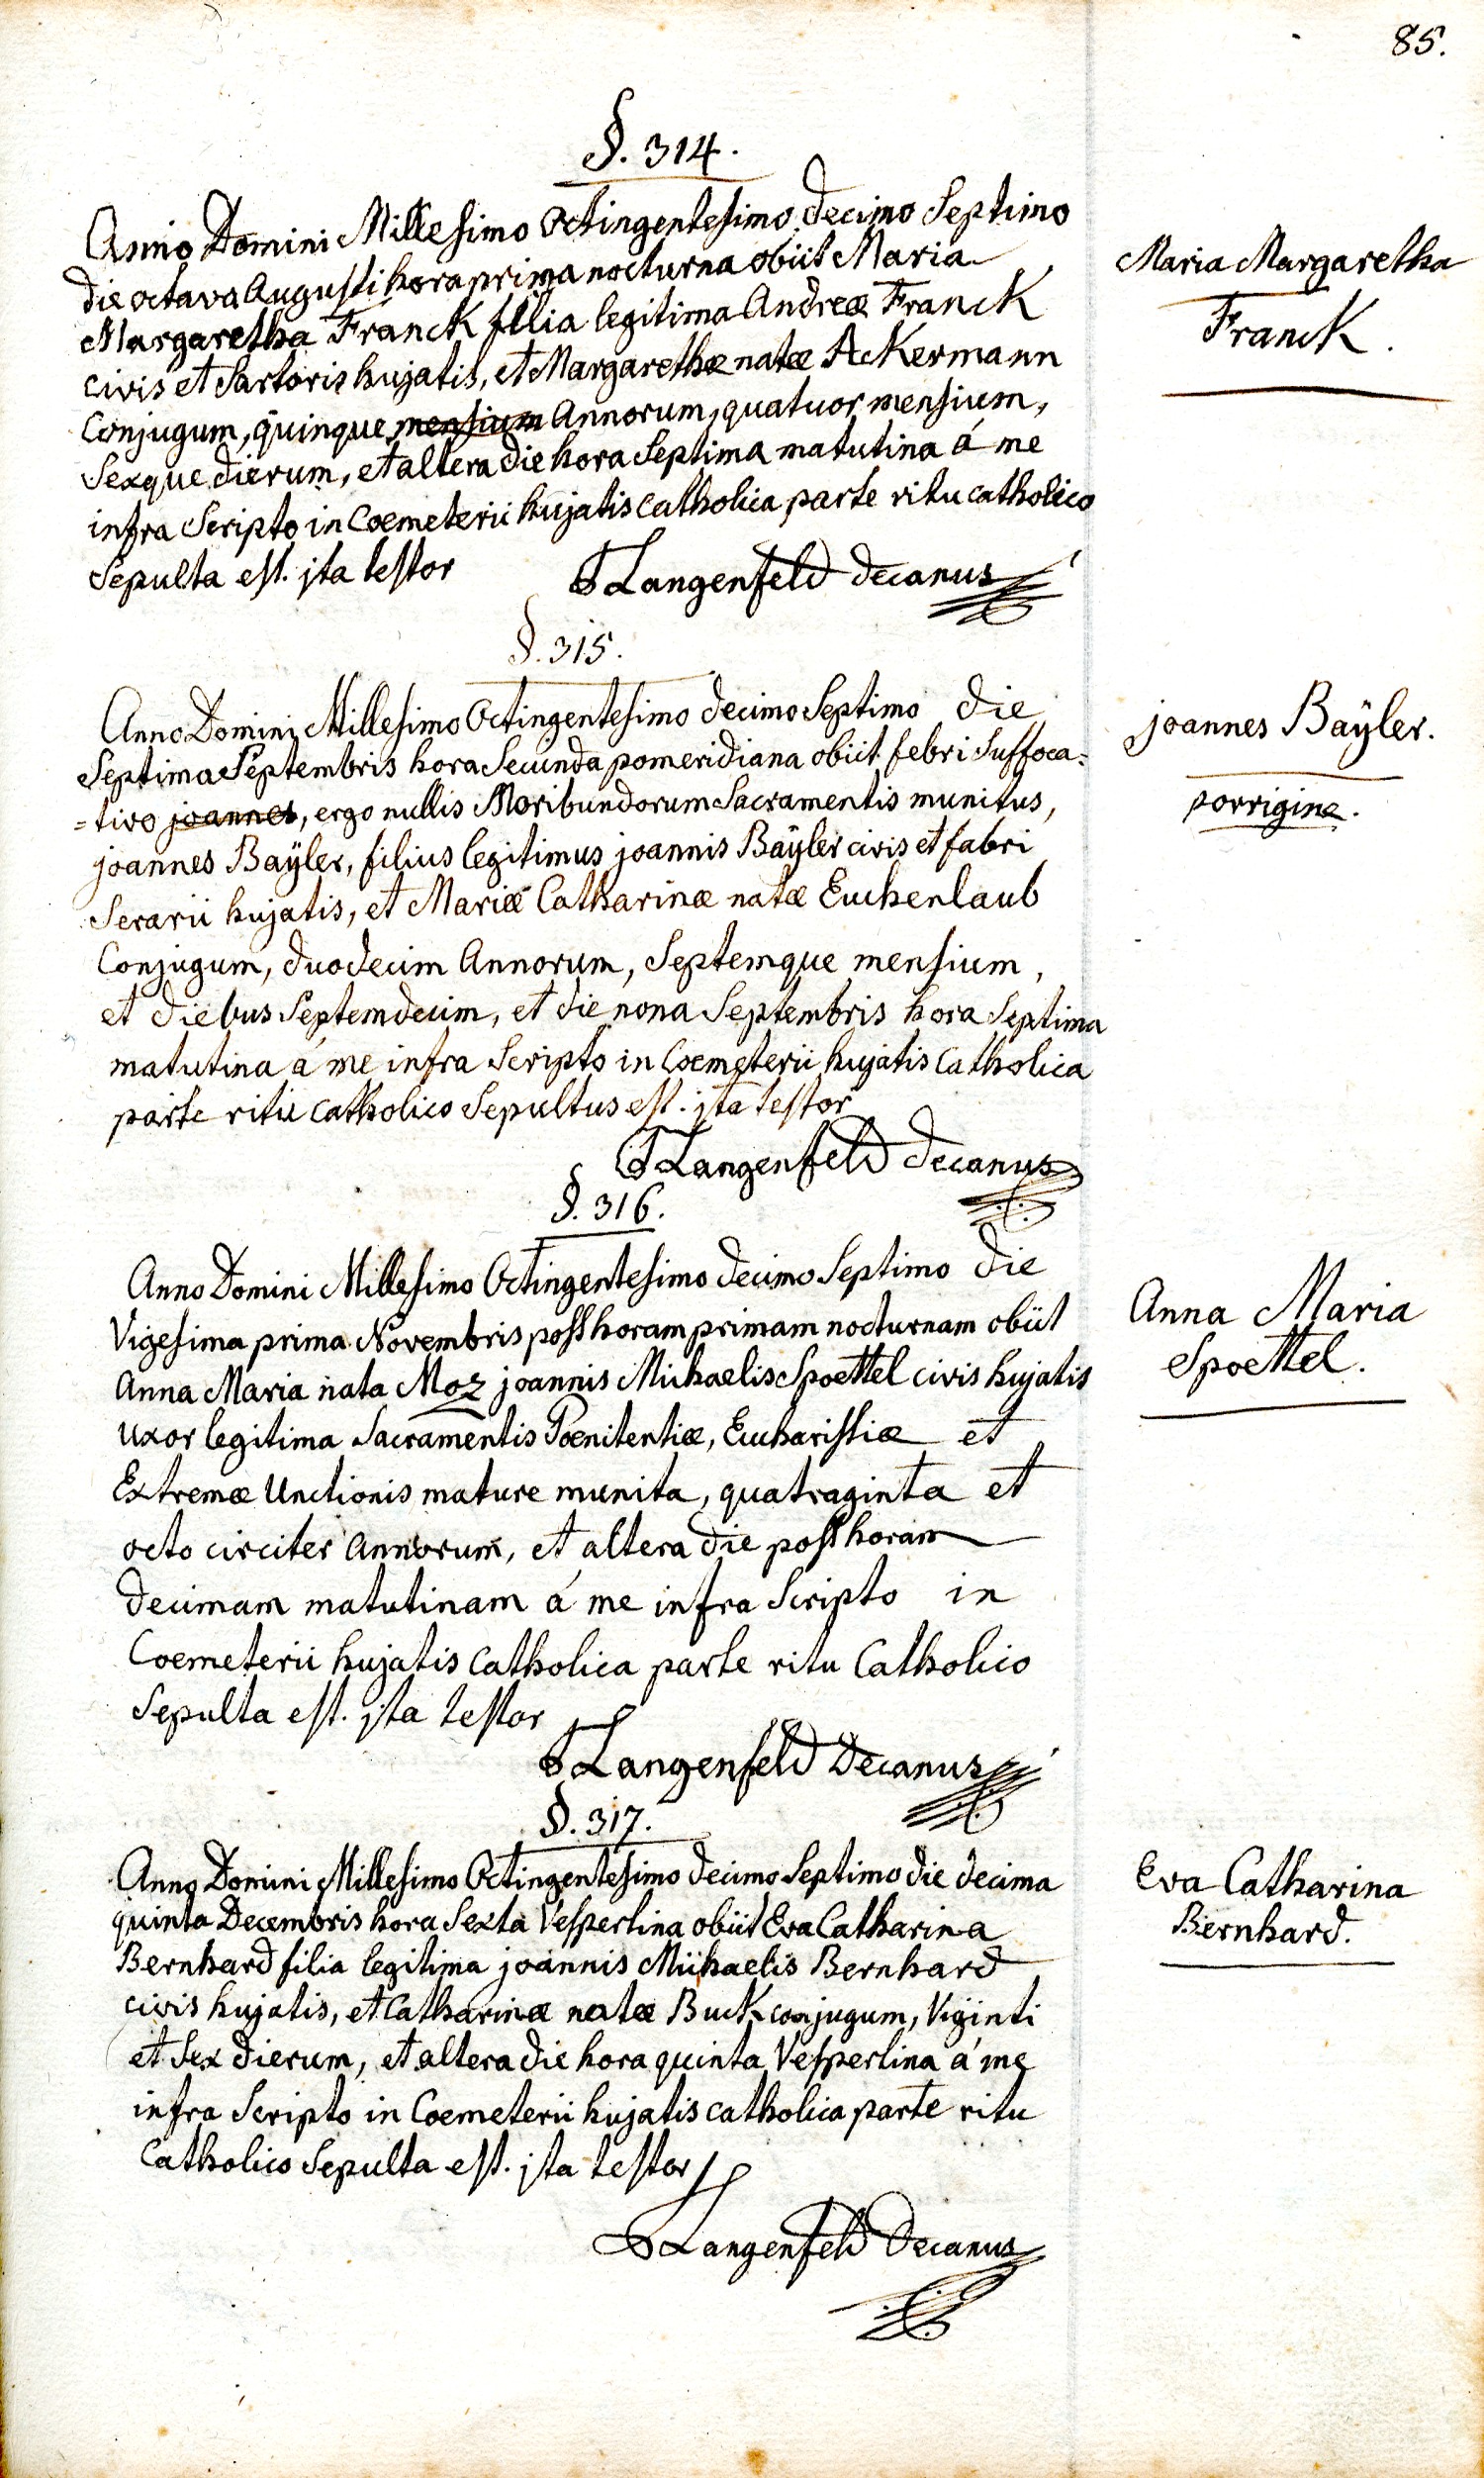 85.
§. 314.
Anno Domini Millesimo Octingentesimo decimo Septimo
die octava Augusti hora prima nocturna obiit Maria
Margaretha Franck filia legitima Andreæ Franck
civis et Sartoris hujatis, et Margarethæ natæ Ackermann
Conjugum, quinque mensium Annorum, quatuor mensium,
Sexque dierum, et altera die hora Septima matutina á me
infra Scripto in Coemeterii hujatis catholica parte ritu catholico
Sepulta est. jta testor
Langenfeld decanus
Maria Margaretha
Franck.
§. 315.
Anno Domini Millesimo Octingentesimo decimo Septimo die
Septima Septembris hora Secunda pomeridiana obiit febri Suffoca=
=tivo joannes, ergo nullis Moribundorum Sacramentis munitus,
joannes Baÿler, filius legitimus joannis Baÿler civis et fabri
Serarii hujatis, et Mariæ Catharinæ natæ Euchenlaub
Conjugum, duodecim Annorum, Septemque mensium,
et diebus Septemdecim, et die nona Septembris hora Septima
matutina á me infra Scripto in Coemeterii hujatis Catholica
parte ritu catholico Sepultus est. jta testor
Langenfeld decanus
joannes Baÿler.
porrigine.
§. 316.
Anno Domini Millesimo Octingentesimo decimo Septimo die
Vigesima prima Novembris post horam primam nocturnam obiit
Anna Maria nata Moz joannis Michaelis Spoettel civis hujatis
uxor legitima Sacramentis Poenitentiæ, Eucharistiæ et
Extremæ Unctionis mature munita, quatraginta et
octo circiter Annorum, et altera die post horam
decimam matutinam á me infra Scripto in
Coemeterii hujatis Catholica parte ritu Catholico
Sepulta est. jta testor
Langenfeld Decanus
Anna Maria
Spoettel.
§. 317.
Anno Domini Millesimo Octingentesimo decimo Septimo die decima
quinta Decembris hora Sexta Vespertina obiit Eva Catharina
Bernhard filia legitima joannis Michaelis Bernhard
civis hujatis, et Catharinæ natæ Buck conjugum, Viginti
et Sex dierum, et altera die hora quinta Vespertina á me
infra Scripto in Coemeterii hujatis catholica parte ritu
Catholico Sepulta est. jta testor
Langenfeld Decanus
Eva Catharina
Bernhard.